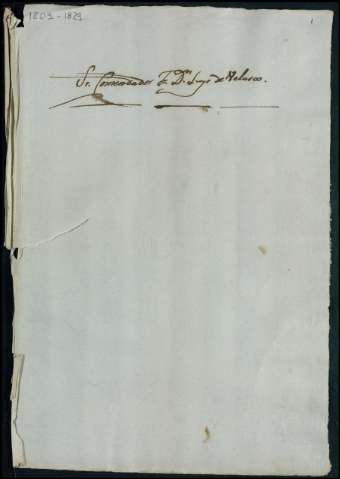 1809-1829
1
Sr. Comendador Fr. Dn. Luys de Velasco.